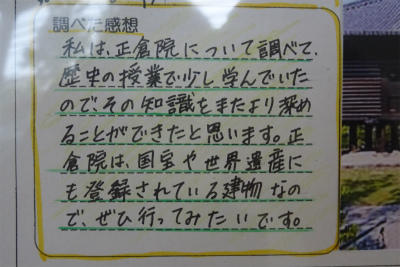 調べた感想
私は、正倉院について調べて、
歴史の授業で少し学んでいた
ので、その知識をまたより深め
ることができたと思います。正
倉院は、国宝や世界遺産に
も登録されている建物なの
で、ぜひ行ってみたいです。